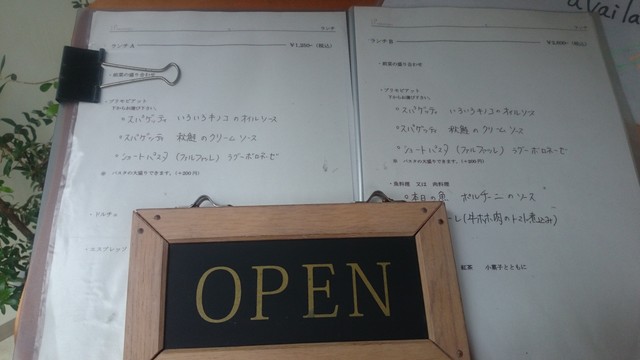 availa
ランチ
ランチA ￥1,350-（税込）
・前菜の盛り合わせ
・プリモピアット
下からお選び下さい。
○スパゲッティ いろいろキノコのオイルソース
○スパゲッティ 秋鮭のクリームソース
○ショートパスタ (ファルファッレ) ラグーボロネーゼ
※ パスタの大盛りできます。（+200円）
・ドルチェ
・エスプレッソ
ランチ
ランチB （税込）
・前菜の盛り合わせ
・プリモピアット
下からお選び下さい。
○スパゲッティ いろいろキノコのオイルソース
○スパゲッティ 秋鮭のクリームソース
○ショートパスタ (ファルファッレ) ラグーボロネーゼ
※ パスタの大盛りできます。（+200円）
・魚料理 又は 肉料理
○本日の魚 ポルチーニのソース
レ(牛ホホ肉のトマト煮込み)
紅茶 小菓子とともに
OPEN